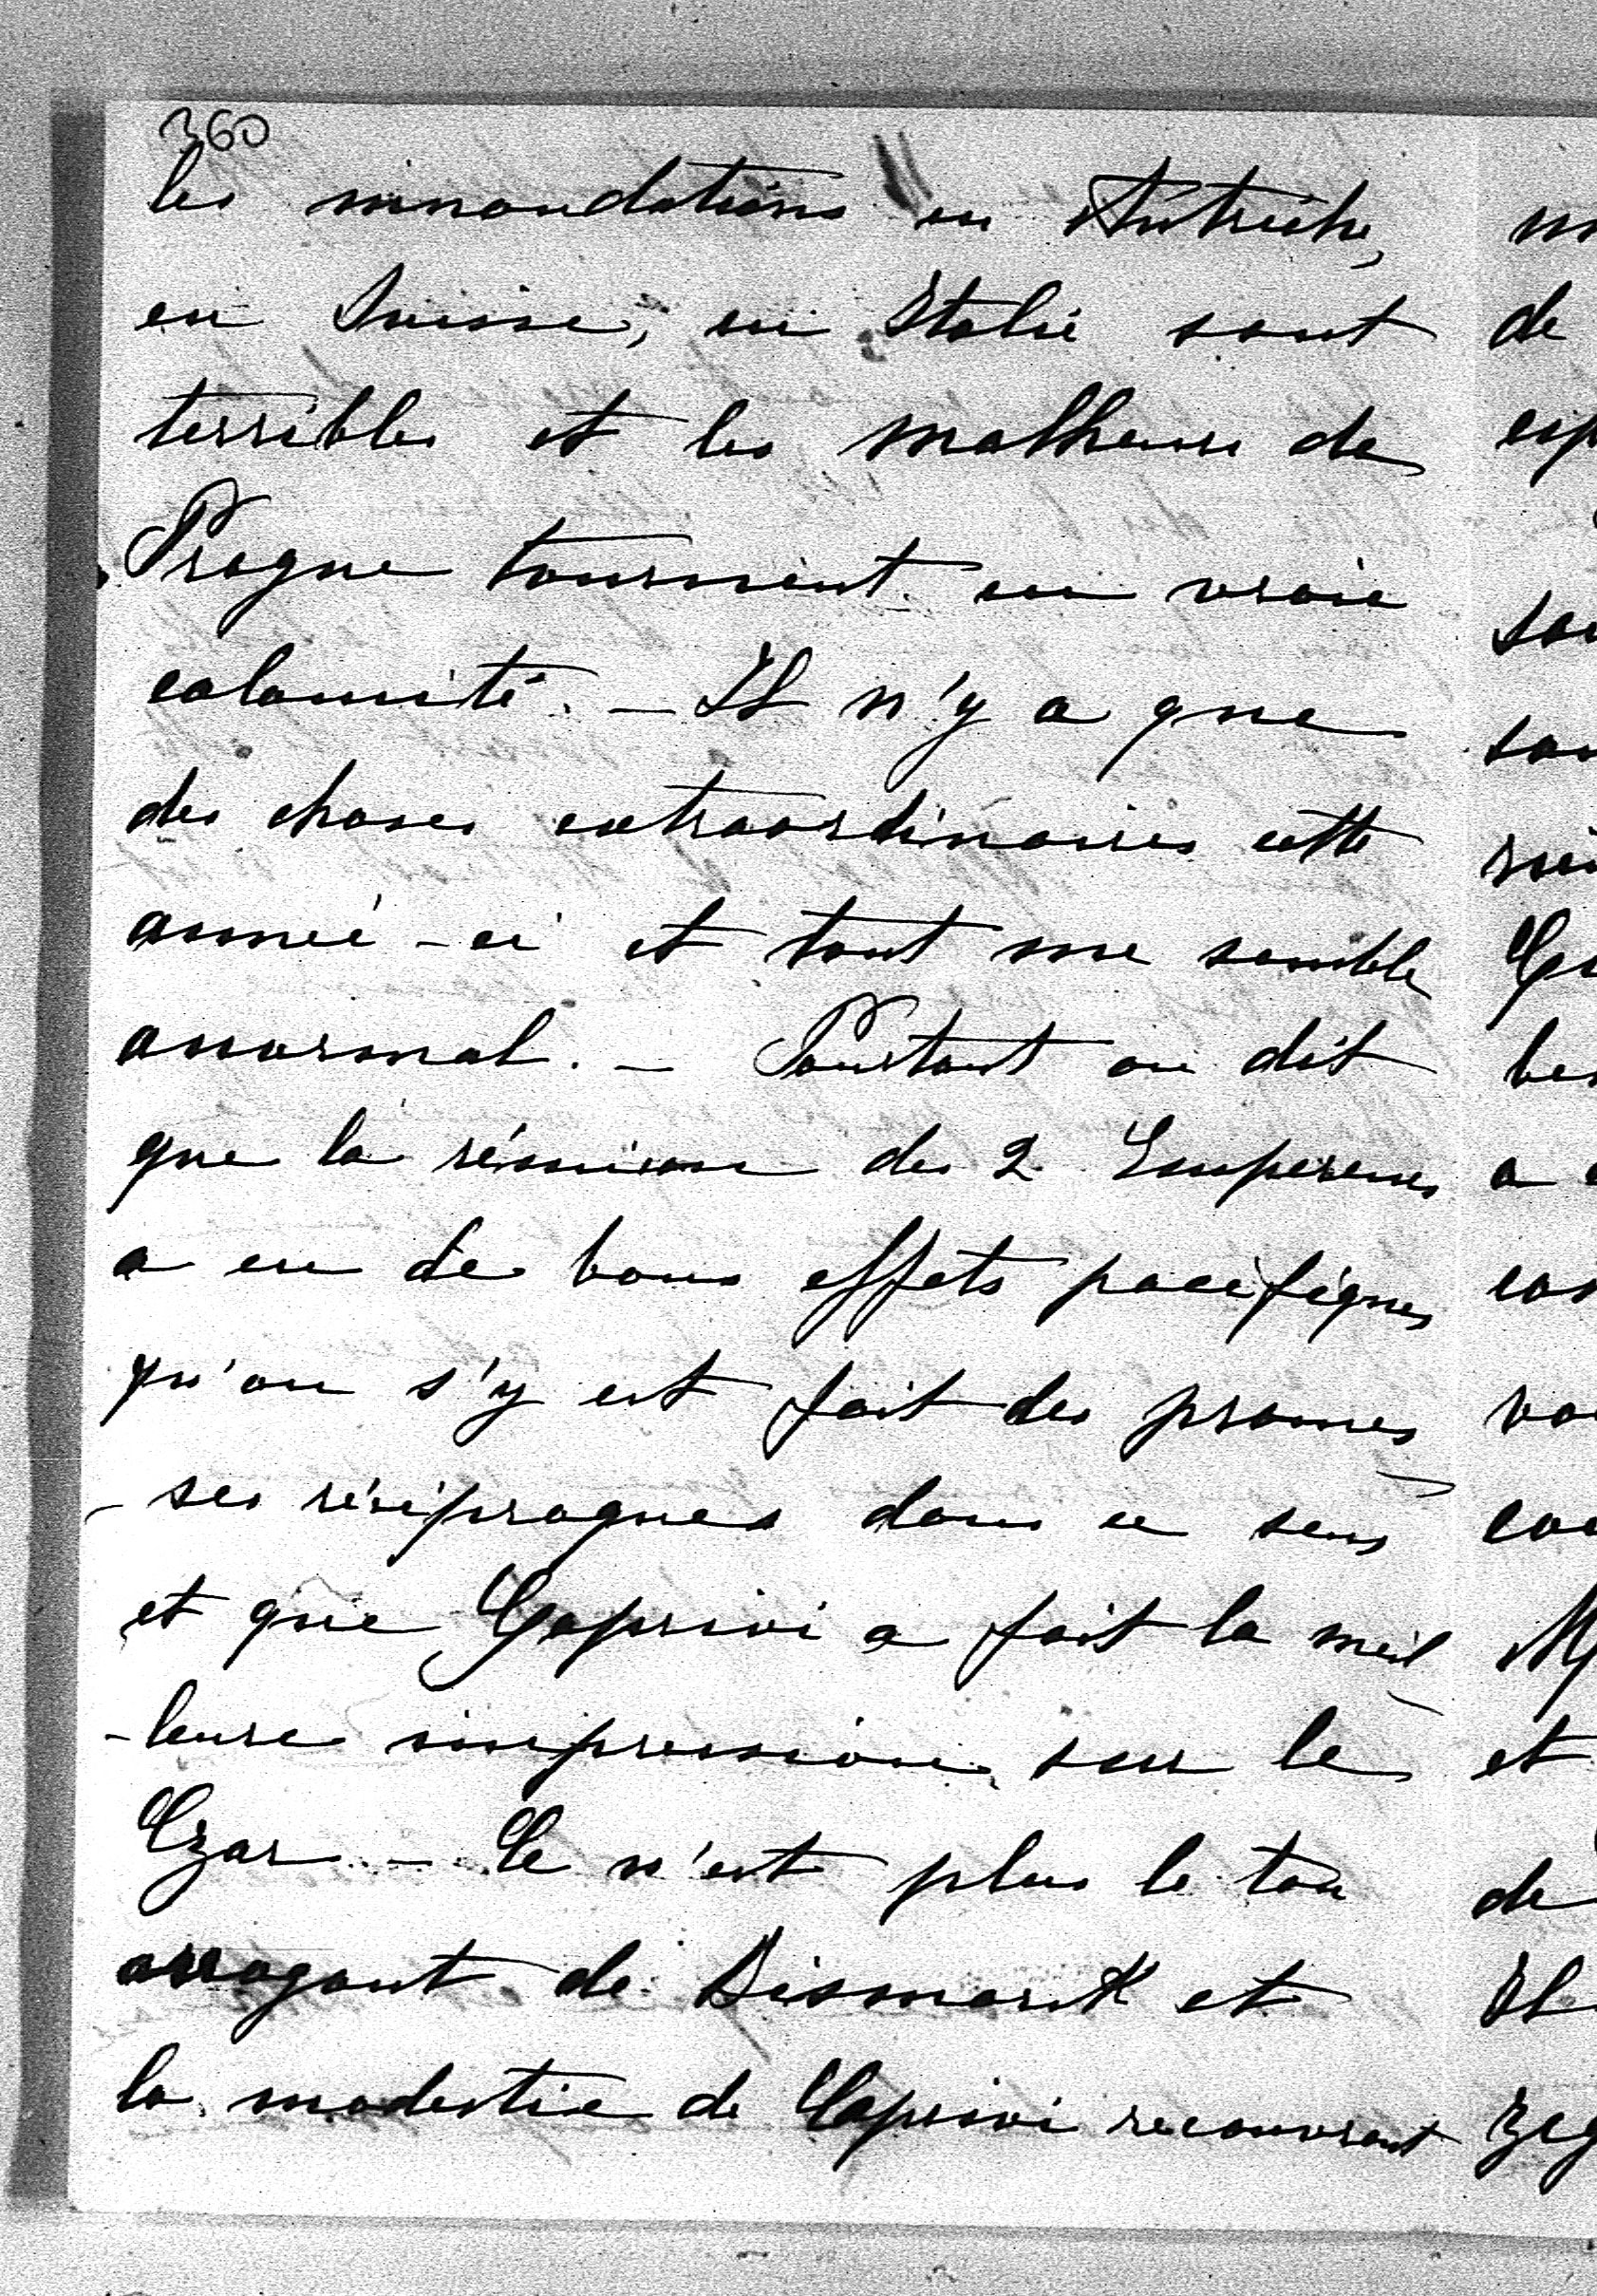 360
les innondations en Autriche,
en Suisse, en Italie sont
terribles et les malheurs de
Prague tournent en vraie
calamité. – Il n'y a que
des choses extraordinaires cette
année-ci et tout me semble
anormal. – Pourtant on dit
que la réunion des 2 Empereurs
a eu de bons effets pacifiques
qu'on s'y est fait des promes
-ses réciproques dans ce sens
et que Caprivi a fait la meil
-leure impression sur le
Czar – Ce n'est plus le ton
arrogant de Bismarck et
la modestie de Caprivi recouvrant